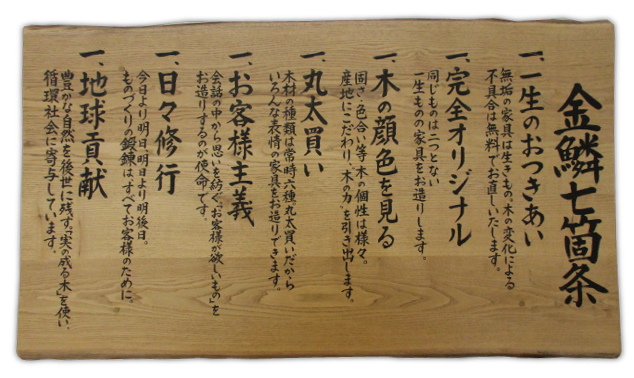 金鱗七箇条
一、一生のおつきあい
無垢の家具は生きもの。木の変化による
不具合は無料でお直しいたします。
一、完全オリジナル
同じものは二つとない
一生ものの家具をお造りします。
一、木の顔色を見る
固さ・色合い等、木の個性は様々。
産地にこだわり、“木の力”を引き出します。
一、丸太買い
木材の種類は常時六種。丸太買いだから
いろんな表情の家具をお造りできます。
一、お客様主義
会話の中から思いを紡ぐ。「お客様が欲しいもの」を
お造りするのが使命です。
一、日々修行
今日より明日、明日より明後日。
ものづくりの鍛錬は、すべてお客様のために。
一、地球貢献
豊かな自然を後世に残す。“実の成る木”を使い、
循環社会に寄与しています。